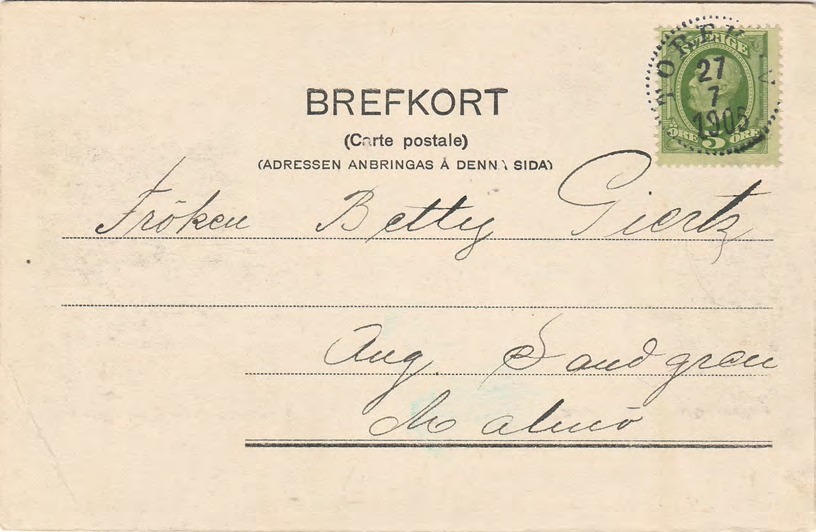 SVERIGE
27
7
ÖRE 5 ÖRE
BREFKORT
(Carte postale)
(ADRESSEN ANBRINGAS Å DENNA SIDA)
Fröken Betty Giertz
Aug. Sandgren
Malmö